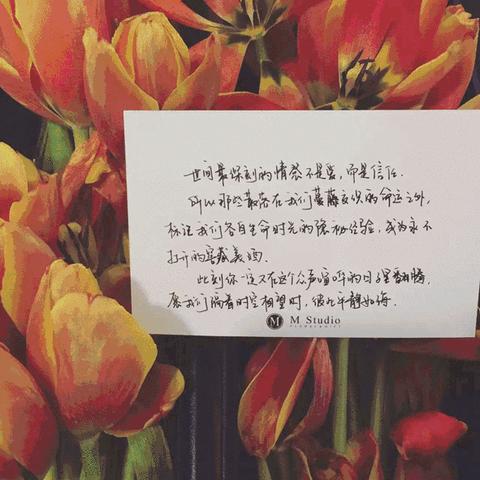 世间最深刻的情感不是爱,而是信任.
所以那些散落在我们蔓藤交织的命运之外,
标记我们各自生命时光的隐秘经验,成为永不
打开的窖藏美酒.
此刻你一定又在这个众声喧哗的日子里翻腾,
愿我们隔着时空相望时,彼此平静如海.
M M Studio